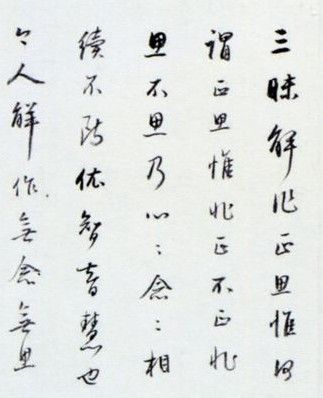 三昧解作正思惟何
謂正思惟非正不正非
思不思乃心〻念〻相
續不断依智慧也
今人解作無念無思